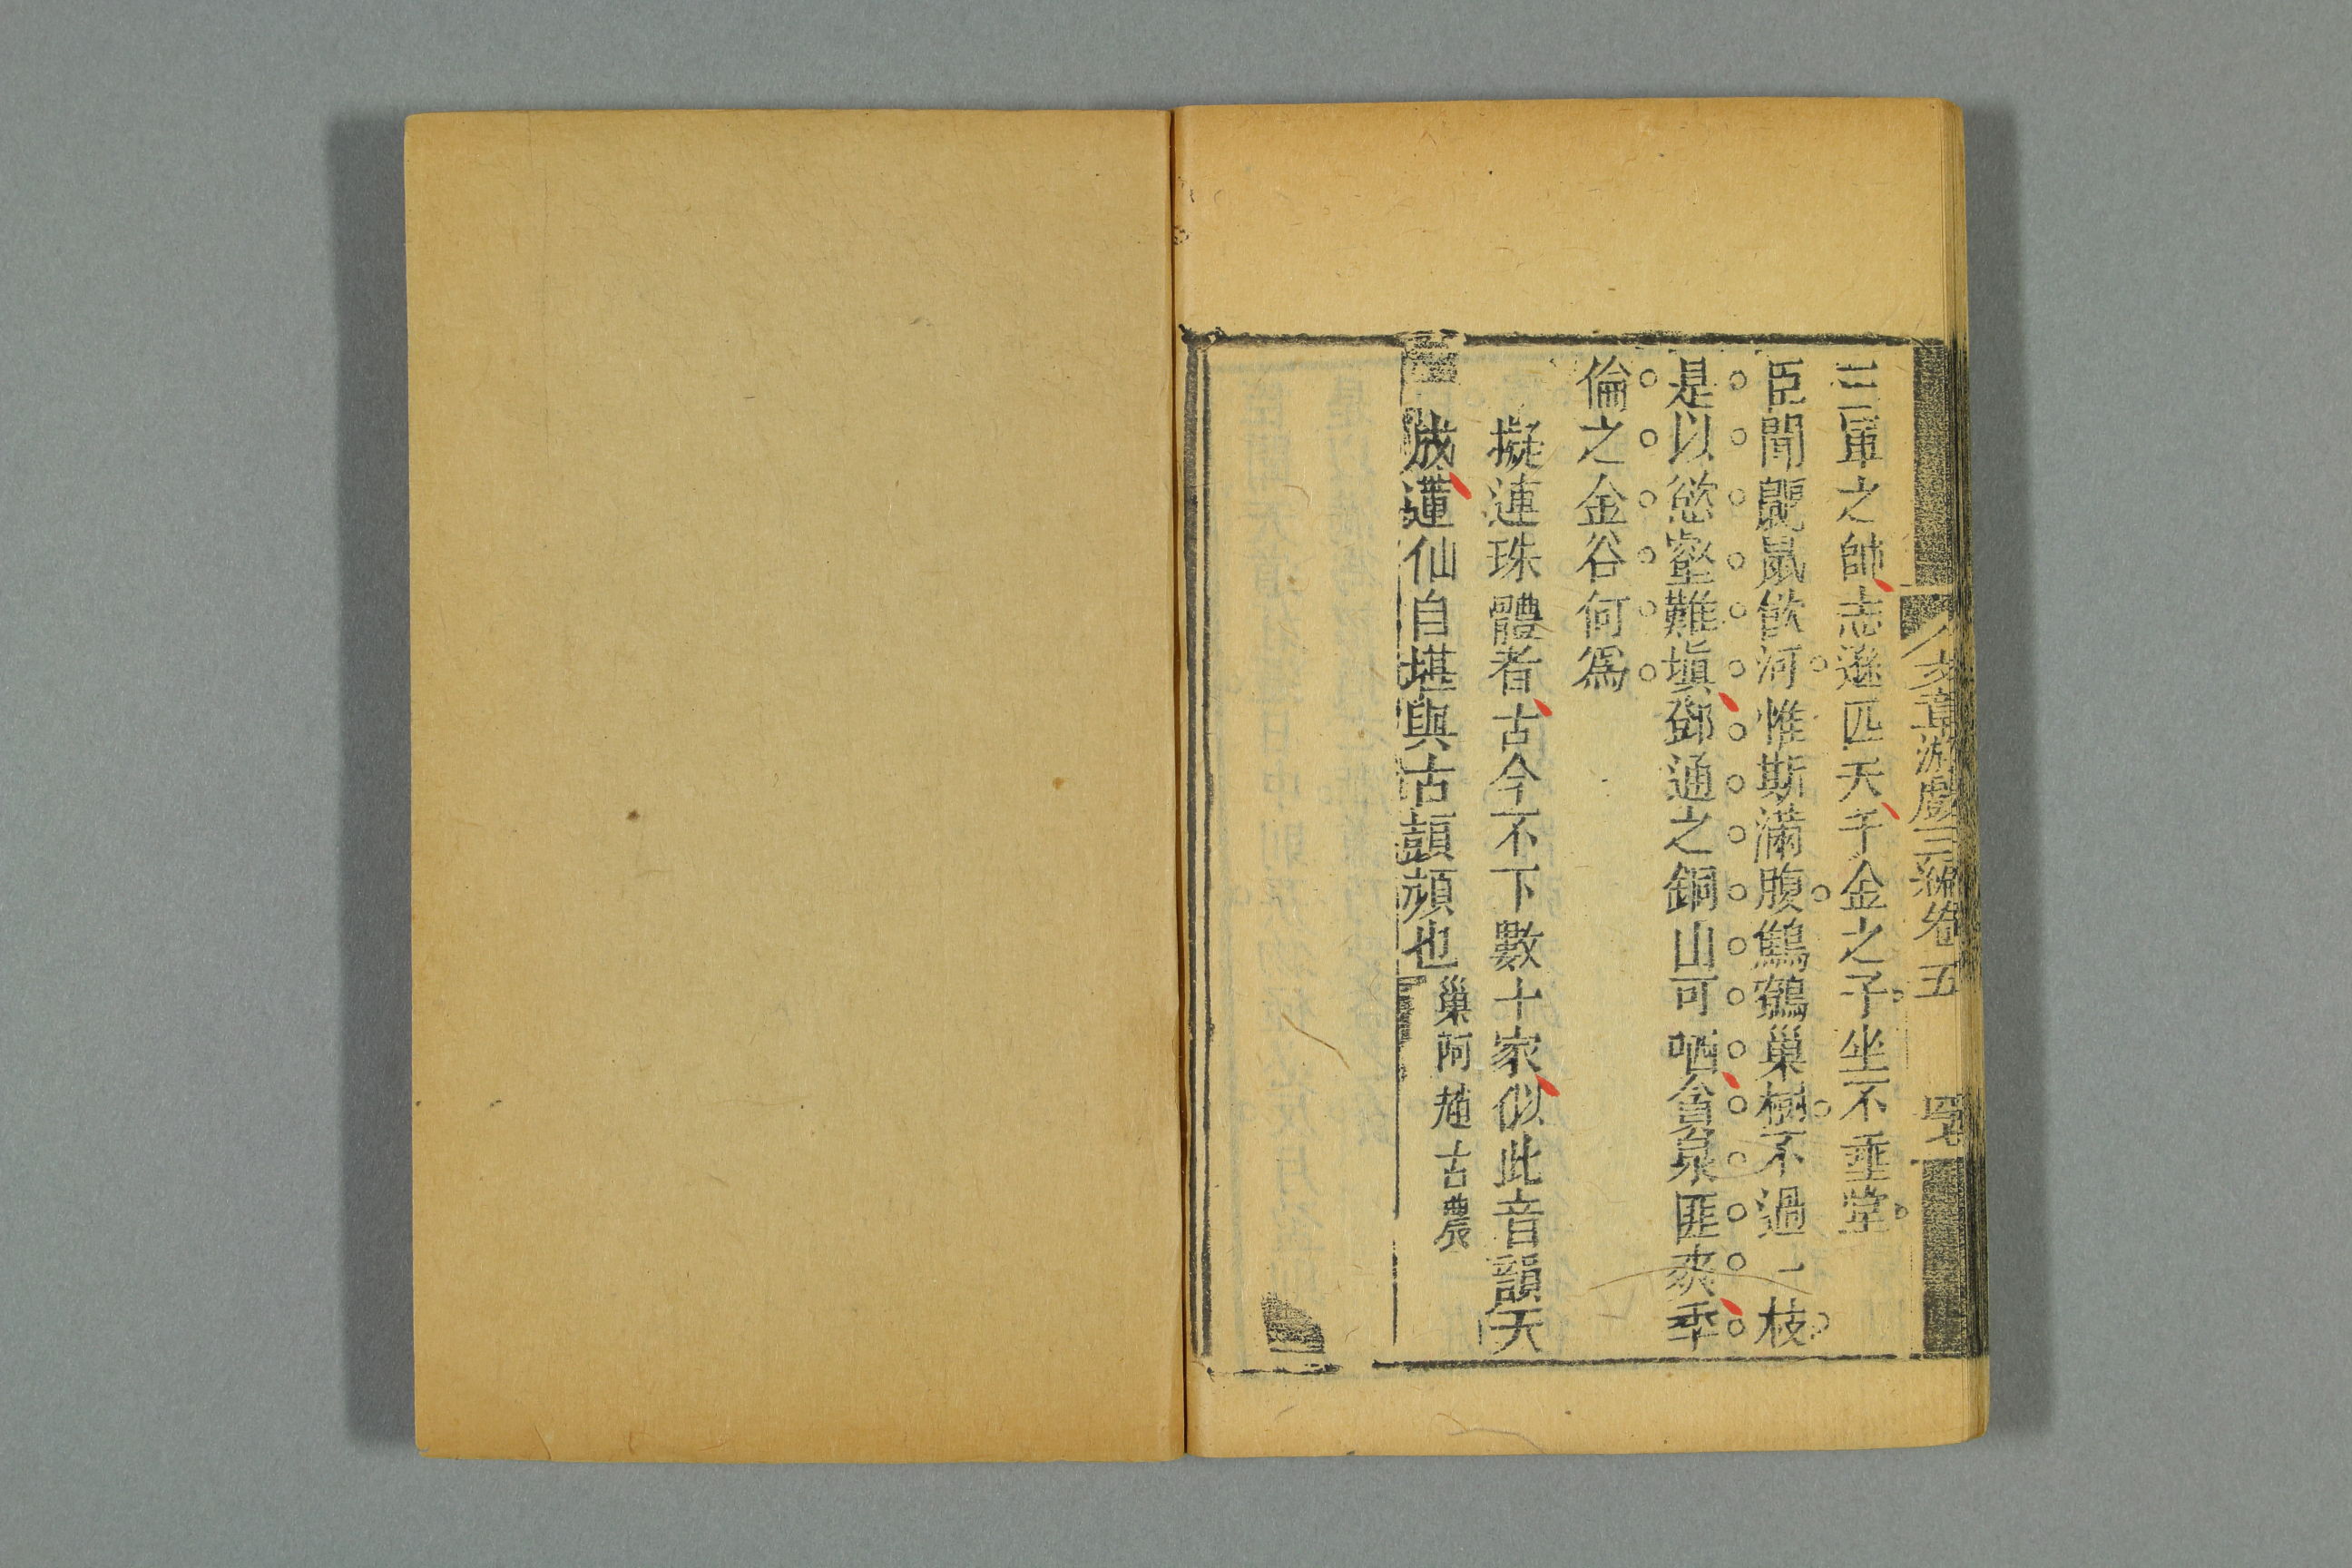 文章游戲三編卷五
三軍之帥志遜匹夫千金之子坐不垂堂
臣聞鼴鼠飲河惟斯滿腹鷦鷯巢樹不過一枝
是以慾壑難塡鄧通之銅山可哂貪泉匪爽季
倫之金谷何爲
擬連珠體者古今不下數十家似此音韻天
成蓮仙自堪與古頡頏也
巢阿趙古農